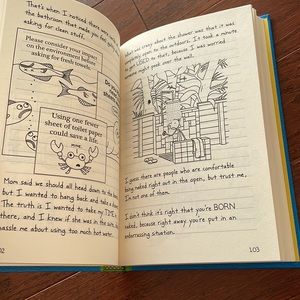 That's when I noticed there were
the bathroom that made you feel
asking for clean stuff.
Please consider your impact
on the environment before
asking for fresh towels.
Using one fewer
sheet of toilet paper
could save a life.
Mom said we should all head down to the
but I wanted to hang back and take a
The truth is I wanted to take my TIME
there, and I knew if she was in the
hassle me about using too much hot water.
102
What was crazy about the shower was that it was
completely open to the outdoors. It took a minute
USED to that, because I was worried
might peek over the wall.
I guess there are people who are comfortable
being naked right out in the open, but trust me,
I'm not one of them.
I don't think it's right that you're BORN
naked, because right away you're put in an
embarrassing situation.
103